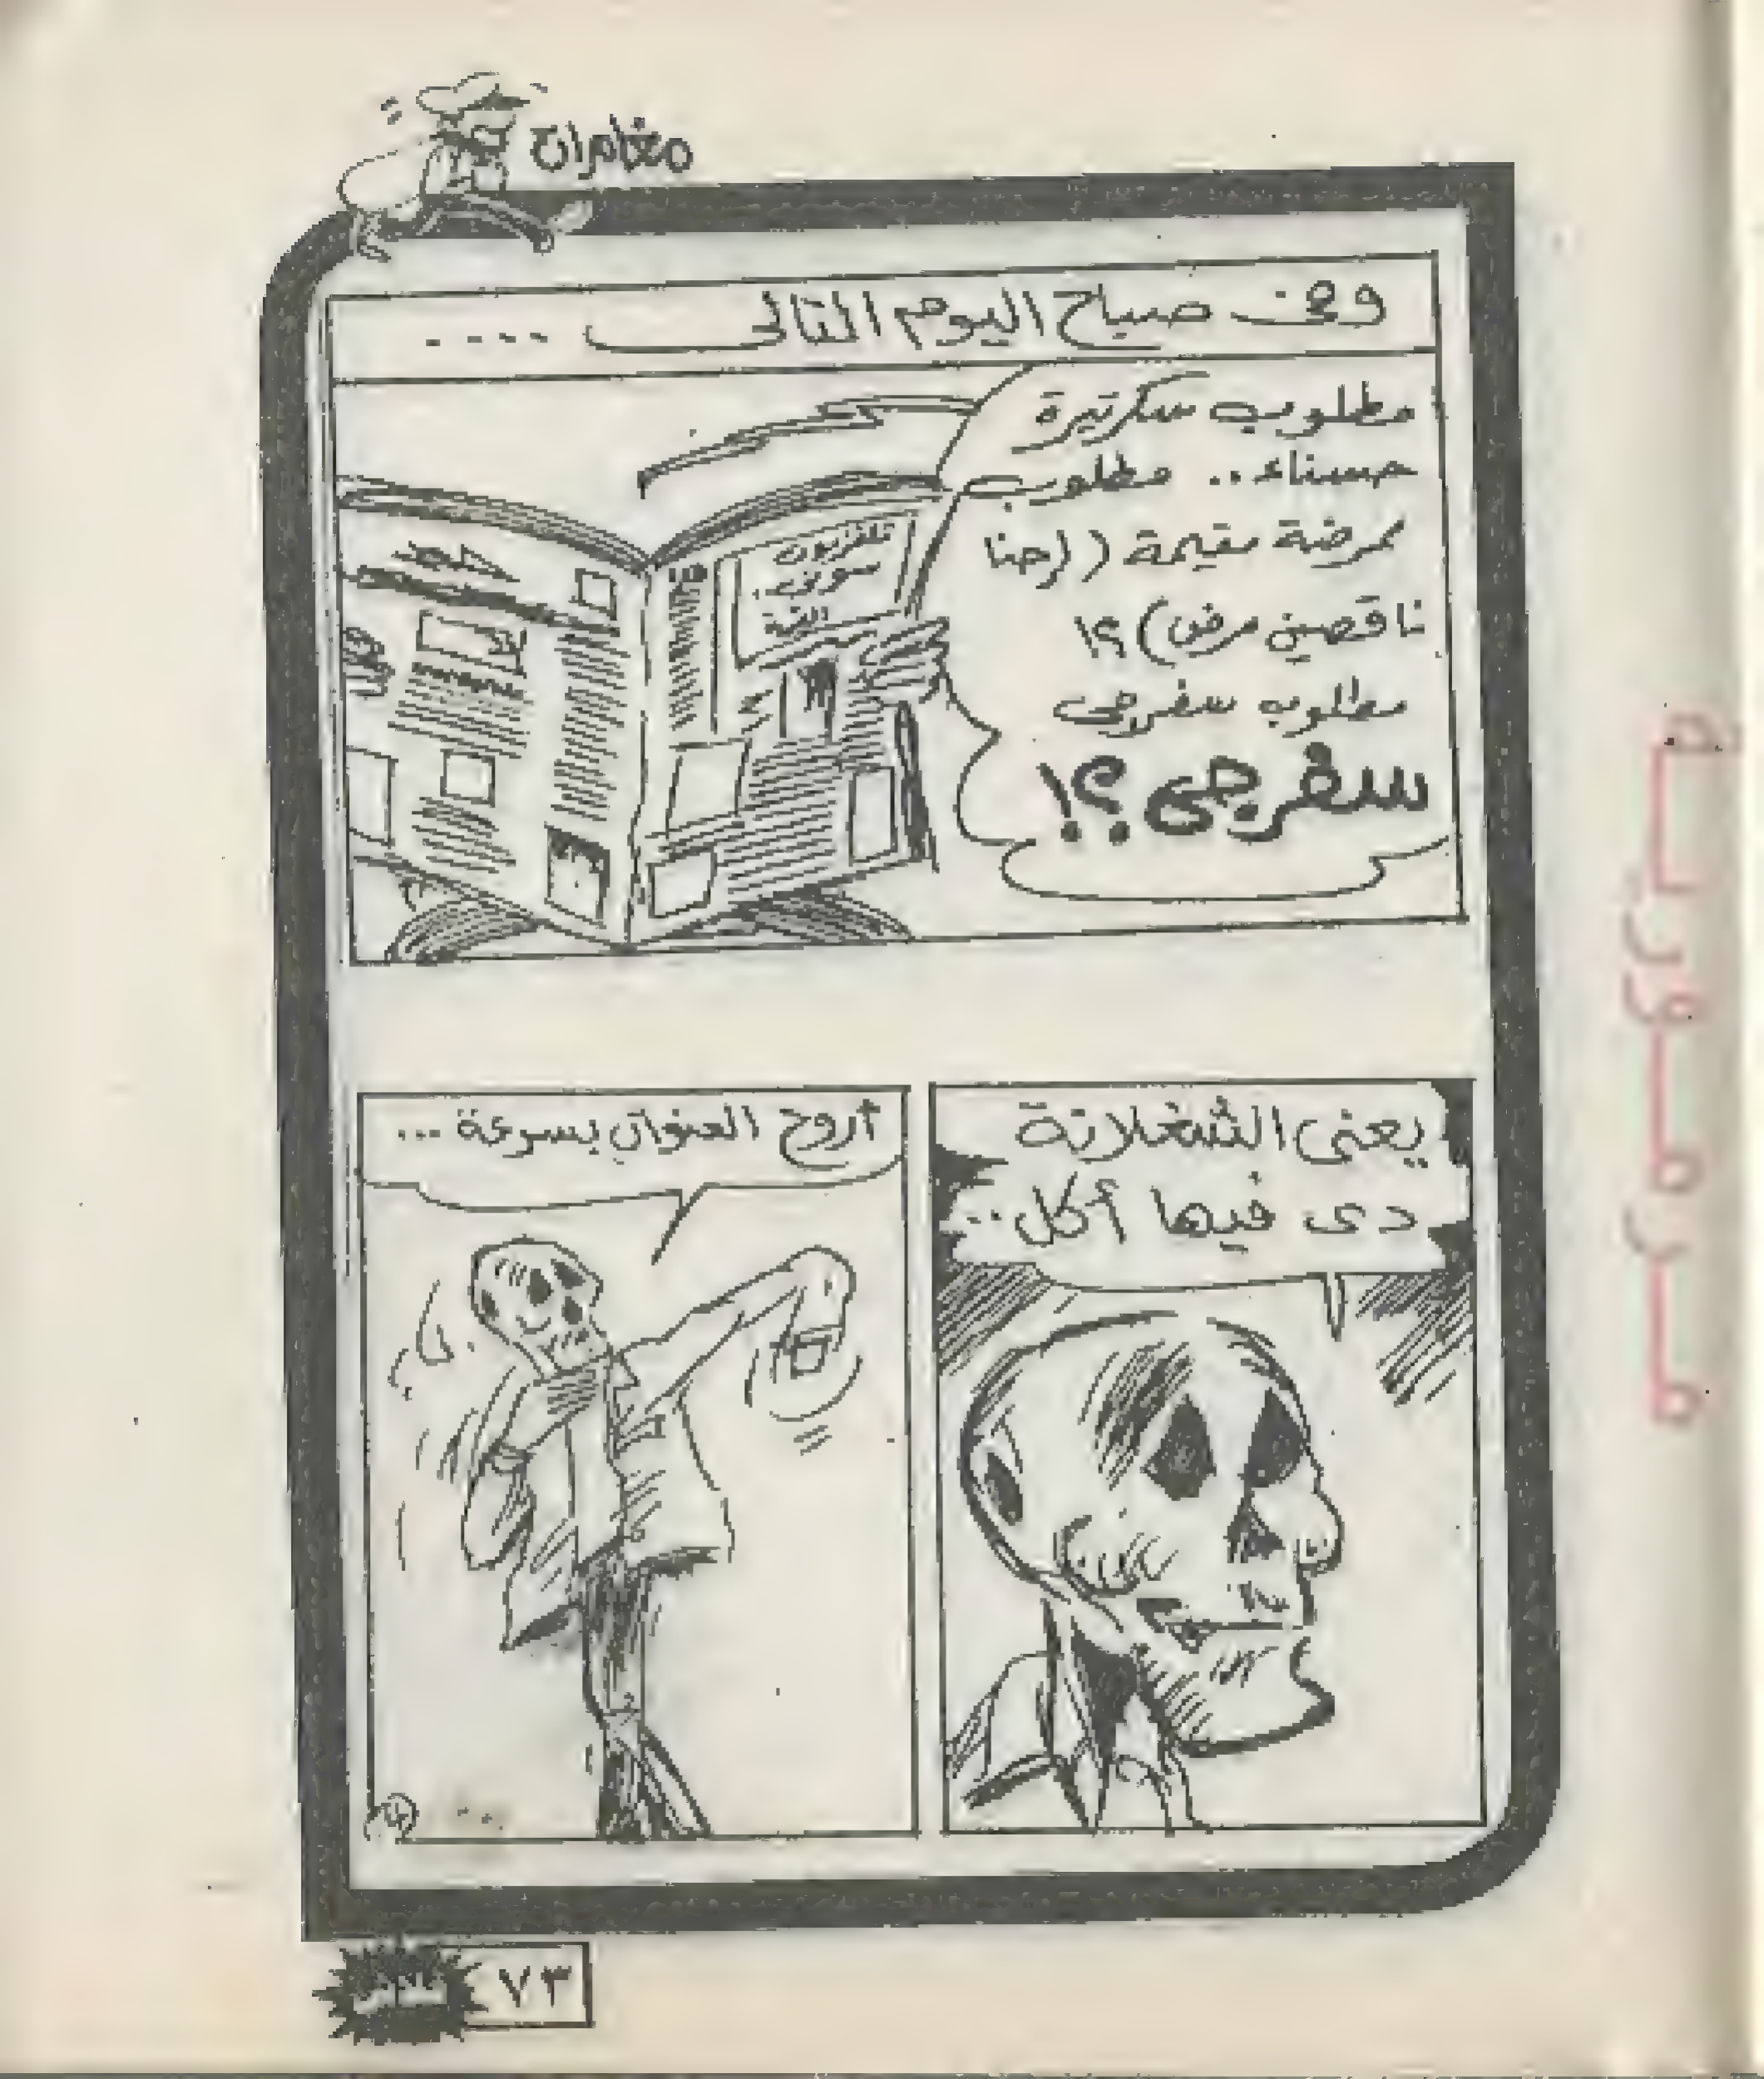 مغامرات
وفى صباح اليوم التالى ....
مطلوب سكرتيرة
حسناء.. مطلوب
ممرضة مقيمة ( إحنا
ناقصين مرض ) ؟!
مطلوب سفرجى
سفرجى ؟!
تلفزيون
سونى
يعنى الشغلانة
دى فيها أكل..
أروح العنوان بسرعة ...
٧٣